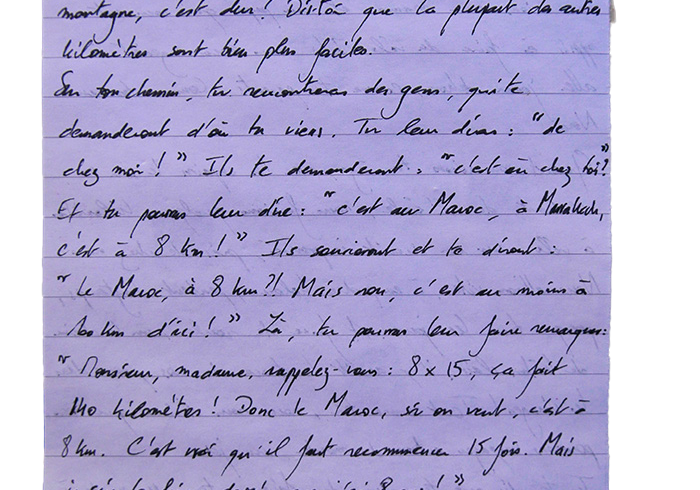 montagne, c'est dur ! Dis-toi que la plupart des autres
kilomètres sont bien plus faciles.
Sur ton chemin, tu rencontreras des gens, qui te
demanderont d'où tu viens. Tu leur diras : "de
chez moi ! " Ils te demanderont : "c'est où chez toi?"
Et tu pourras leur dire : "c'est au Maroc, à Marrakech,
c'est à 8 km ! " Ils souriront et te diront :
" Le Maroc, à 8 km ?! Mais non, c'est au moins à
100 km d'ici ! " Là, tu pourras leur faire remarquer:
" Monsieur, madame, rappelez-vous : 8 x 15, ça fait
140 kilomètres ! Donc le Maroc, si on veut, c'est à
8 km. C'est vrai qu'il faut recommencer 15 fois. Mais